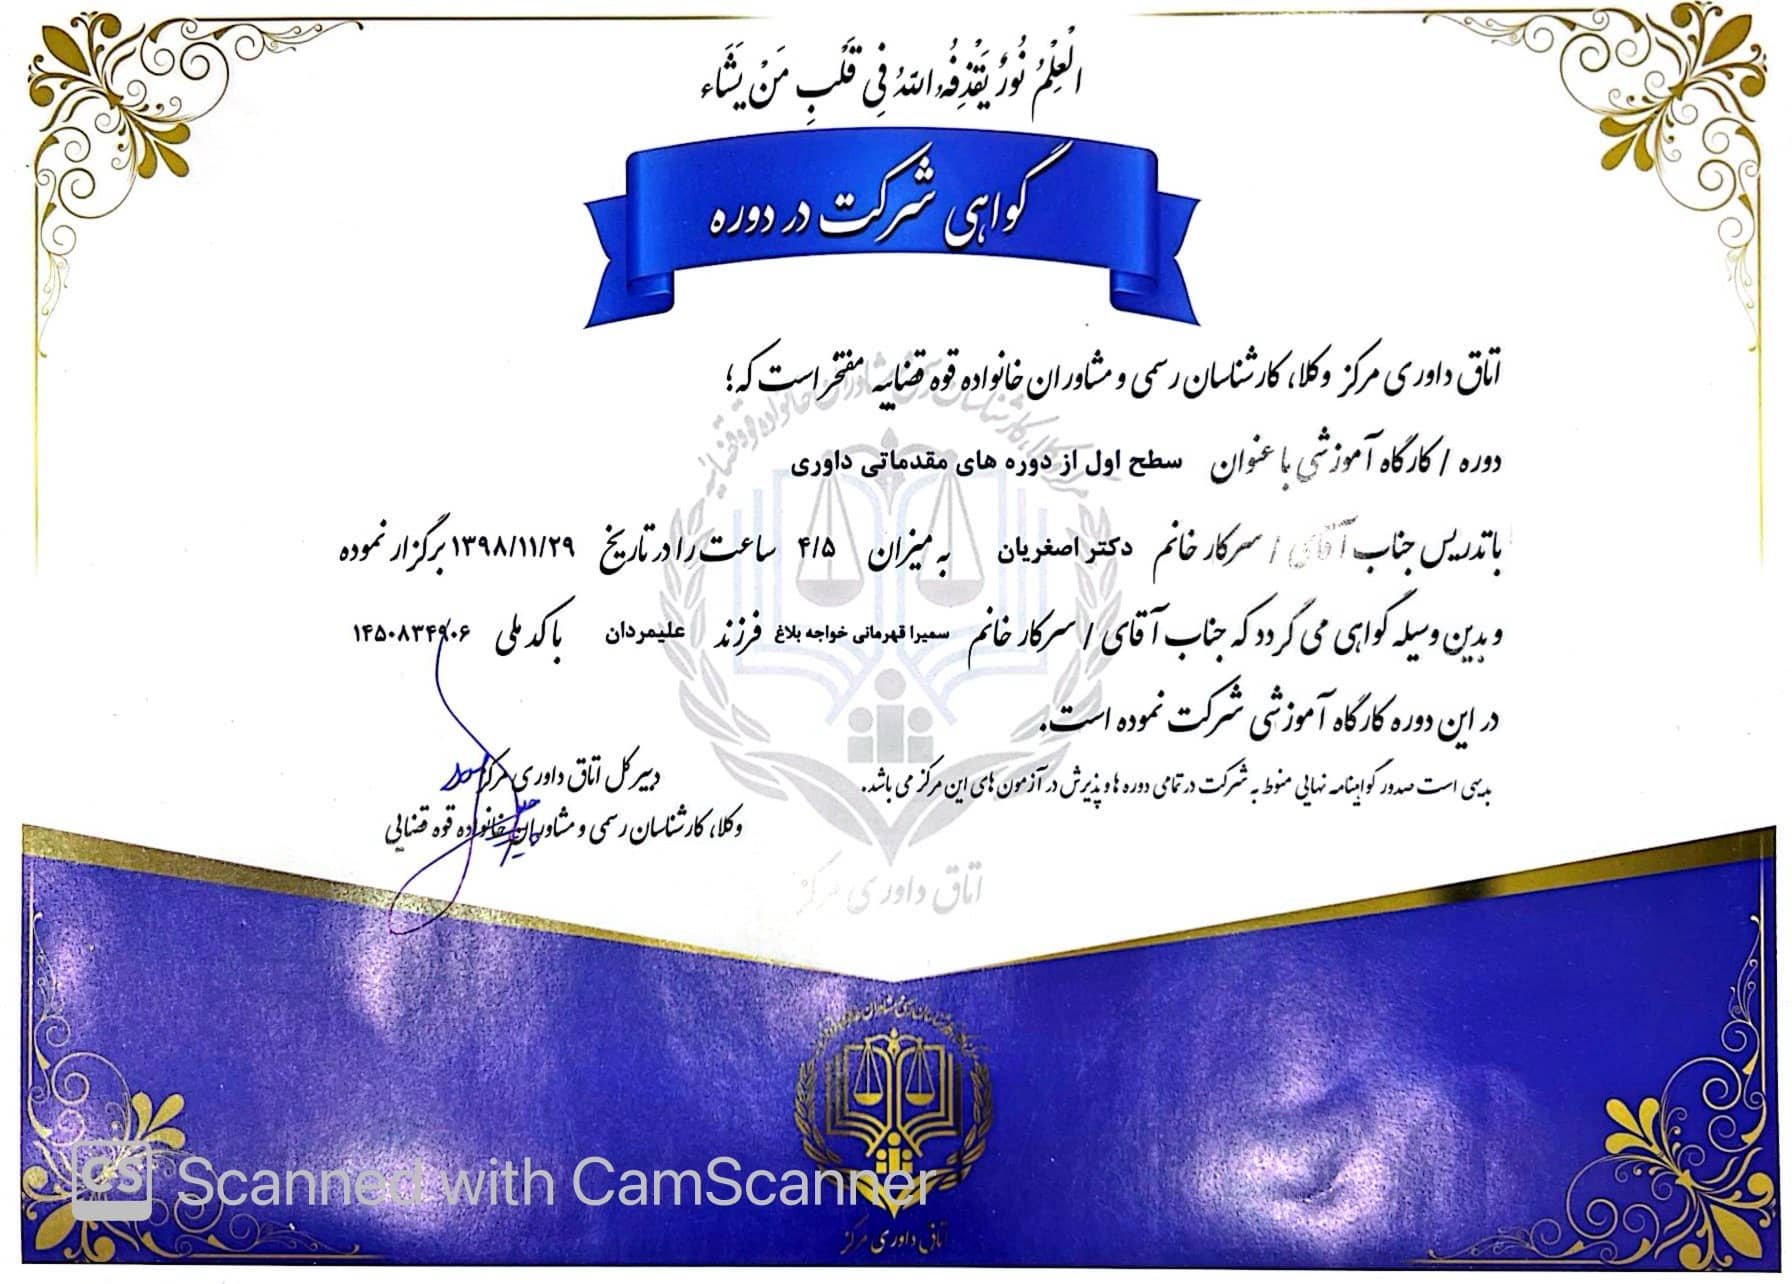 الْعِلْمُ نُورٌ يَقْذِفُهُ اللهُ فِي قَلْبِ مَنْ يَشَاء
گواهی شرکت در دوره
اتاق داوری مرکز وکلا، کارشناسان رسمی و مشاوران خانواده قوه قضاییه مفتخر است که؛
دوره / کارگاه آموزشی با عنوان سطح اول از دوره های مقدماتی داوری
با تدریس جناب آقای / سرکار خانم دکتر اصغریان به میزان ۴/۵ ساعت را در تاریخ ۱۳۹۸/۱۱/۲۹ برگزار نموده
و بدین وسیله گواهی می گردد که جناب آقای / سرکار خانم سمیرا قهرمانی خواجه بلاغ فرزند علیمردان با کد ملی ۱۴۵۰۸۳۴۹۰۶
در این دوره کارگاه آموزشی شرکت نموده است.
بدیهی است صدور گواهینامه نهایی منوط به شرکت در تمامی دوره ها و پذیرش در آزمون های این مرکز می باشد.
دبیر کل اتاق داوری مرکز
وکلا، کارشناسان رسمی و مشاوران خانواده قوه قضایی
اتاق داوری مرکز
CS Scanned with CamScanner
اتاق داوری مرکز